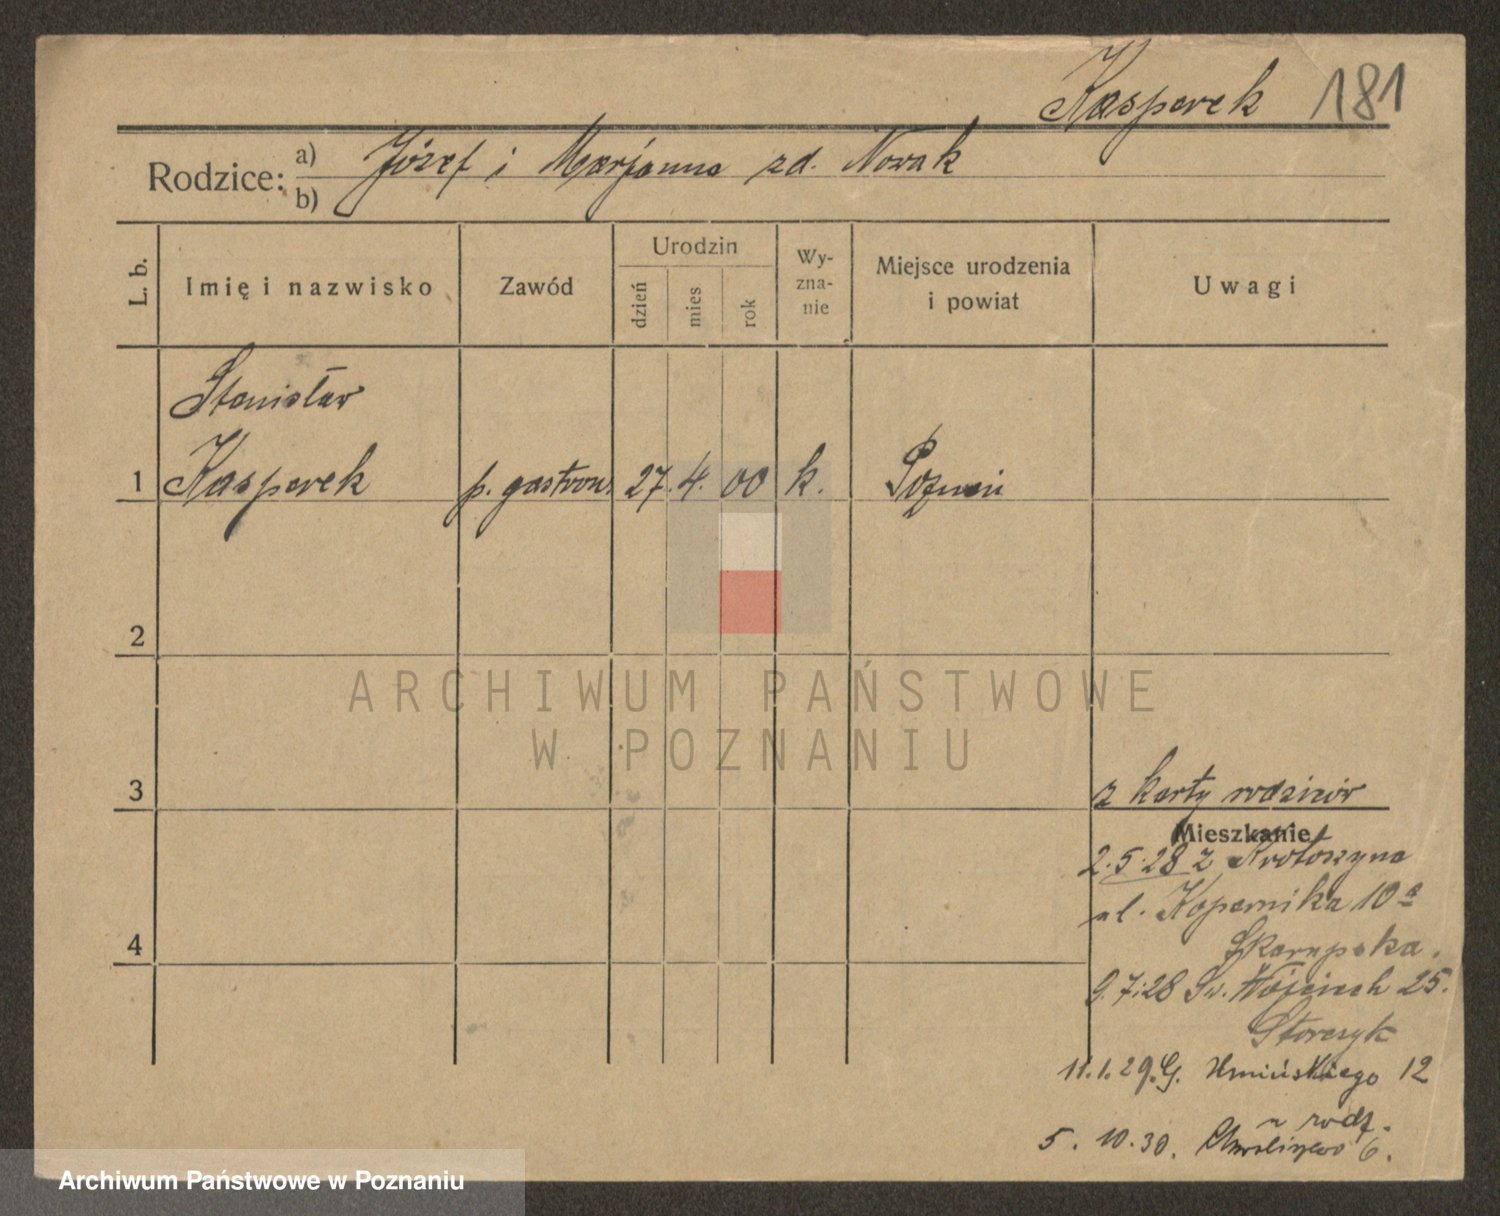 Kasperek 181
Rodzice: a) Józef i Marjanna zd. Nowak
b)
L. b.
Imię i nazwisko
Zawód
Urodzin
dzień
mies
rok
Wy-
zna-
nie
Miejsce urodzenia
i powiat
Uwagi
Stanisław
1 Kasperek p. gastron. 27. 4. 00 k. Poznań
2
ARCHIWUM PAŃSTWOWE
W POZNANIU
3 z karty rodziców
Mieszkanie
2.5.28 z Krotoszyna
ul. Kopernika 10a
Skarupska.
9.7.28 Św. Wojciech 25.
4
Storczyk
11.1.29. G. Umińskiego 12
u rodz.
5. 10. 30. Chwaliszewo 6.
Archiwum Państwowe w Poznaniu